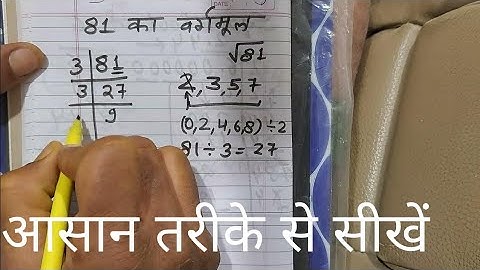 81 का वर्गमूल
√81
3 | 81
3 | 27
9
2, 3, 5, 7
(0,2,4,6,8) ÷2
81 ÷ 3 = 27
आसान तरीके से सीखें